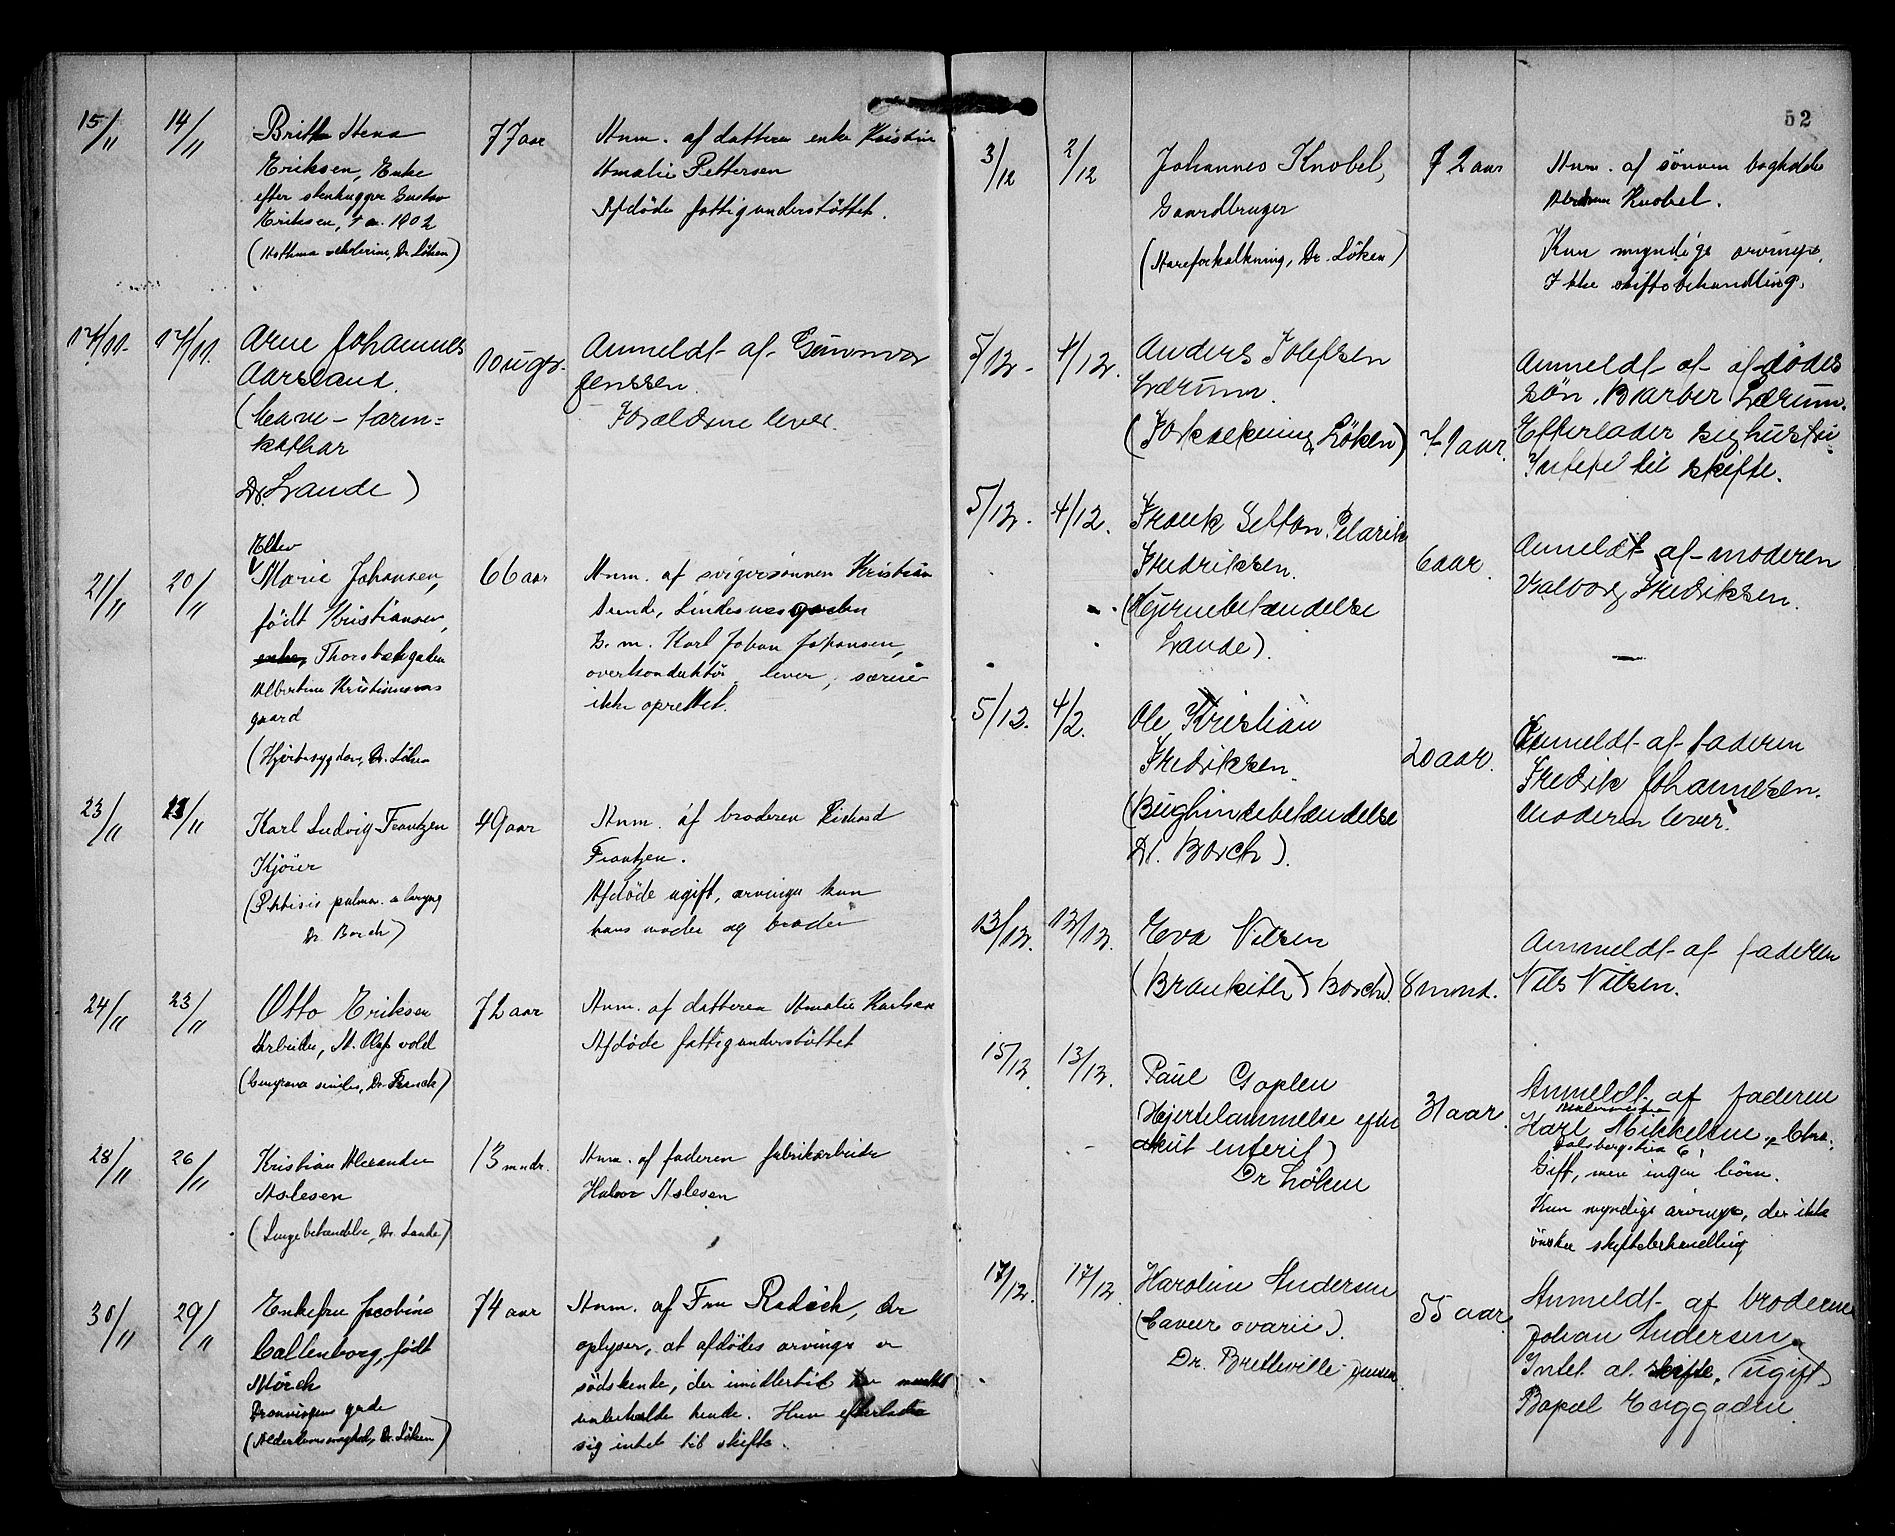 15/11 14/11 Britha Stena 77 aar Anm. af datteren enke Kristine
Eriksen, Enke Amalie Pettersen
efter stenhugger Gustav Afdöde fattigunderstöttet.
Eriksen, † a. 1902
(Asthma, Dr. Löken)
17/11. 17/11. Arne Johannes 10 uger. Anmeldt af Gunvor
Aarsland. Jenssen.
(Mave-tarm= Forældrene lever.
kathar
Dr. Lande)
Ellev
21/11 20/11 Marie Johansen, 66 aar Anm. af svigersønnen Kristian
født Kristiansen, Lunde, Lindesnesgaden
enke, Thorsbækgaden G. m. Karl Johan Johansen,
Albertine Kristiansens overkonduktör lever, særeie
gaard ikke oprettet.
(Hjertesygdom, Dr. Löken
23/11 23/11 Karl Ludvig Frantzen 49 aar Anm. af broderen Rikhard
Kjöier Frantzen.
(Phtisis pulmon. & laryng Afdöde ugift, arvinger kun
Dr. Borch) hans moder og broder
24/11 23/11 Otto Eriksen 72 aar Anm. af datteren Amalie Karlsen
Arbeider, St. Olafs vold Afdöde fattigunderstöttet
(Gangræna senilis, Dr. Finck)
28/11 26/11 Kristian Alexander 13 mndr. Anm. af faderen fabrikarbeider
Aslesen Halvor Aslesen
(Lungebetændelse, Dr. Lande)
30/11 29/11 Enkefru Jacobine 74 aar Anm. af Fru Radich, der
Callenborg, født oplyser, at afdödes arvinger er
Mörch södskende, der imidlertid
Dronningens gade hende. Hun efterlader
(Alderdomssvaghed, Dr. Löken) sig intet til skifte.
52
3/12 2/12 Johannes Knobel, 72 aar Anm. af sönnen boghdlr
Gaardbruger Abraham Knobel.
(Aareforkalkning, Dr. Löken) Kun myndige arvinger,
Ikke skiftebehandling.
5/12. 4/12. Anders Tolefsen Anmeldt af afdödes
Lærum. sön, Barber Lærum.
(Forkalkning, Löken) 71 aar. Efterlader sig hustru.
Intet til skifte.
5/12. 4/12. Frank Selton Pelarik Anmeldt af moderen
Fredriksen. 6 aar. Valborg Fredriksen.
(Hjernebetændelse
Lande).
5/12. 4/2. Ole Kristian Anmeldt af faderen
Fredriksen. 20 aar. Fredrik Johannesen.
(Bughindebetændelse Moderen lever.
Dr. Borch).
13/12. 12/12. Eva Nilsen Anmeldt af faderen
(Bronkitt) Borch). 8 mnd. Nils Nilsen.
15/12. 13/12. Paul Goplen Anmeldt af faderen
(Hjertelammelse efter 31 aar. Karl Mikkelsen, Chra.
akut enterit) 6,
Dr Löken Gift, men ingen börn.
Kun myndige arvinger, der ikke
önsker skiftebehandling
17/12. 17/12. Karoline Andersen 55 aar. Anmeldt af broderen
(Cancer ovarii). Johan Andersen.
Dr. Bretteville-Jensen. Intet at skifte, (ugift)
Bopæl Enggaden.